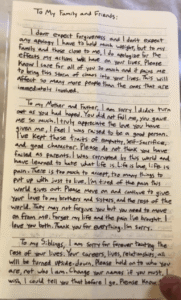 To My Family and Friends:
I don't expect forgiveness and I don't expect
any apology I have to hold much weight, but to my
family and those close to me, I do apologize for the
effects my actions will have on your lives. Please
know I care for all of you so much and it pains me
to bring this storm of chaos into your lives. This will
effect so many more people than the ones that are
immediately involved.
To my Mother and Father, I am sorry I didn't turn
out as you had hoped. You did not fail me, you gave
me so much. I truly appreciate the love you have
given me, I feel I was raised to be a good person.
I've kept those traits of empathy, self-sacrifice,
and good character. Please do not think you have
failed as parents. I was corrupted by this world and
have learned to hate what life is. Life is love, life is
pain. There is too much to accept, too many things to
put up with just to live. I'm tired of the pain this
world gives out. Please move on and continue to give
your love to my brothers and sisters, and the rest of the
world. They may not forgive you but we need to move
on from me. Forget my life and the pain I've brought. I
love you both. Thank you for everything. I'm sorry.
To my Siblings, I am sorry for forever tainting the
rest of your lives. Your careers, lives, relationships, all
will be turned upside-down. Please hold on to who you
are, not who I am. Change your names if you must. I
wish I could tell you that before I go. Please know